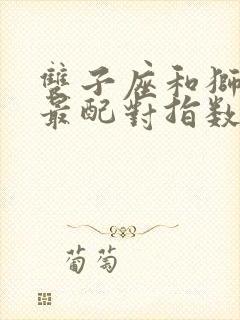 雙子座和獅
最配對指数
葡萄